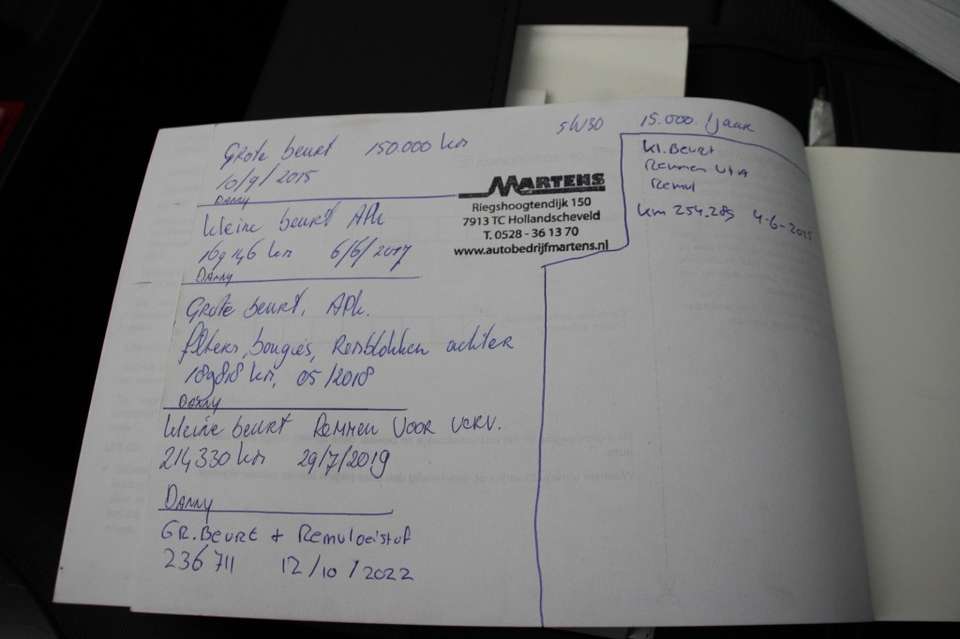 Grote beurt 150.000 km
10/9/2015
Danny
kleine beurt APK
169146 km 6/6/2017
Danny
Grote beurt, APK.
filters, bougies, Remblokken achter
189818 km, 05/2018
Danny
kleine beurt Remmen voor verv.
214,330 km 29/7/2019
Danny
GR.Beurt + Remvloeistof
236 711 12/10/2022
MARTENS
Riegshoogtendijk 150
7913 TC Hollandscheveld
T. 0528 - 36 13 70
www.autobedrijfmartens.nl
5W30 15.000. /jaar
Kl.Beurt
Remmen V+A
Remvl
km 254.285 4-6-2025